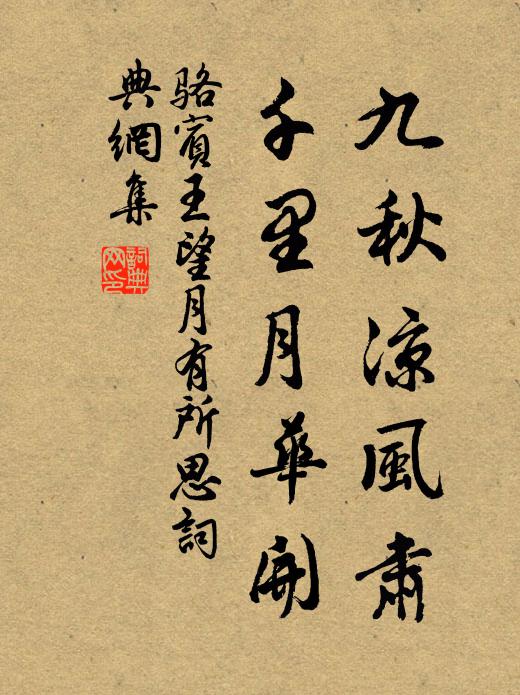 九秋涼風肅
千里月華開
駱賓王望月有所思詞
典網集
詞典
网印